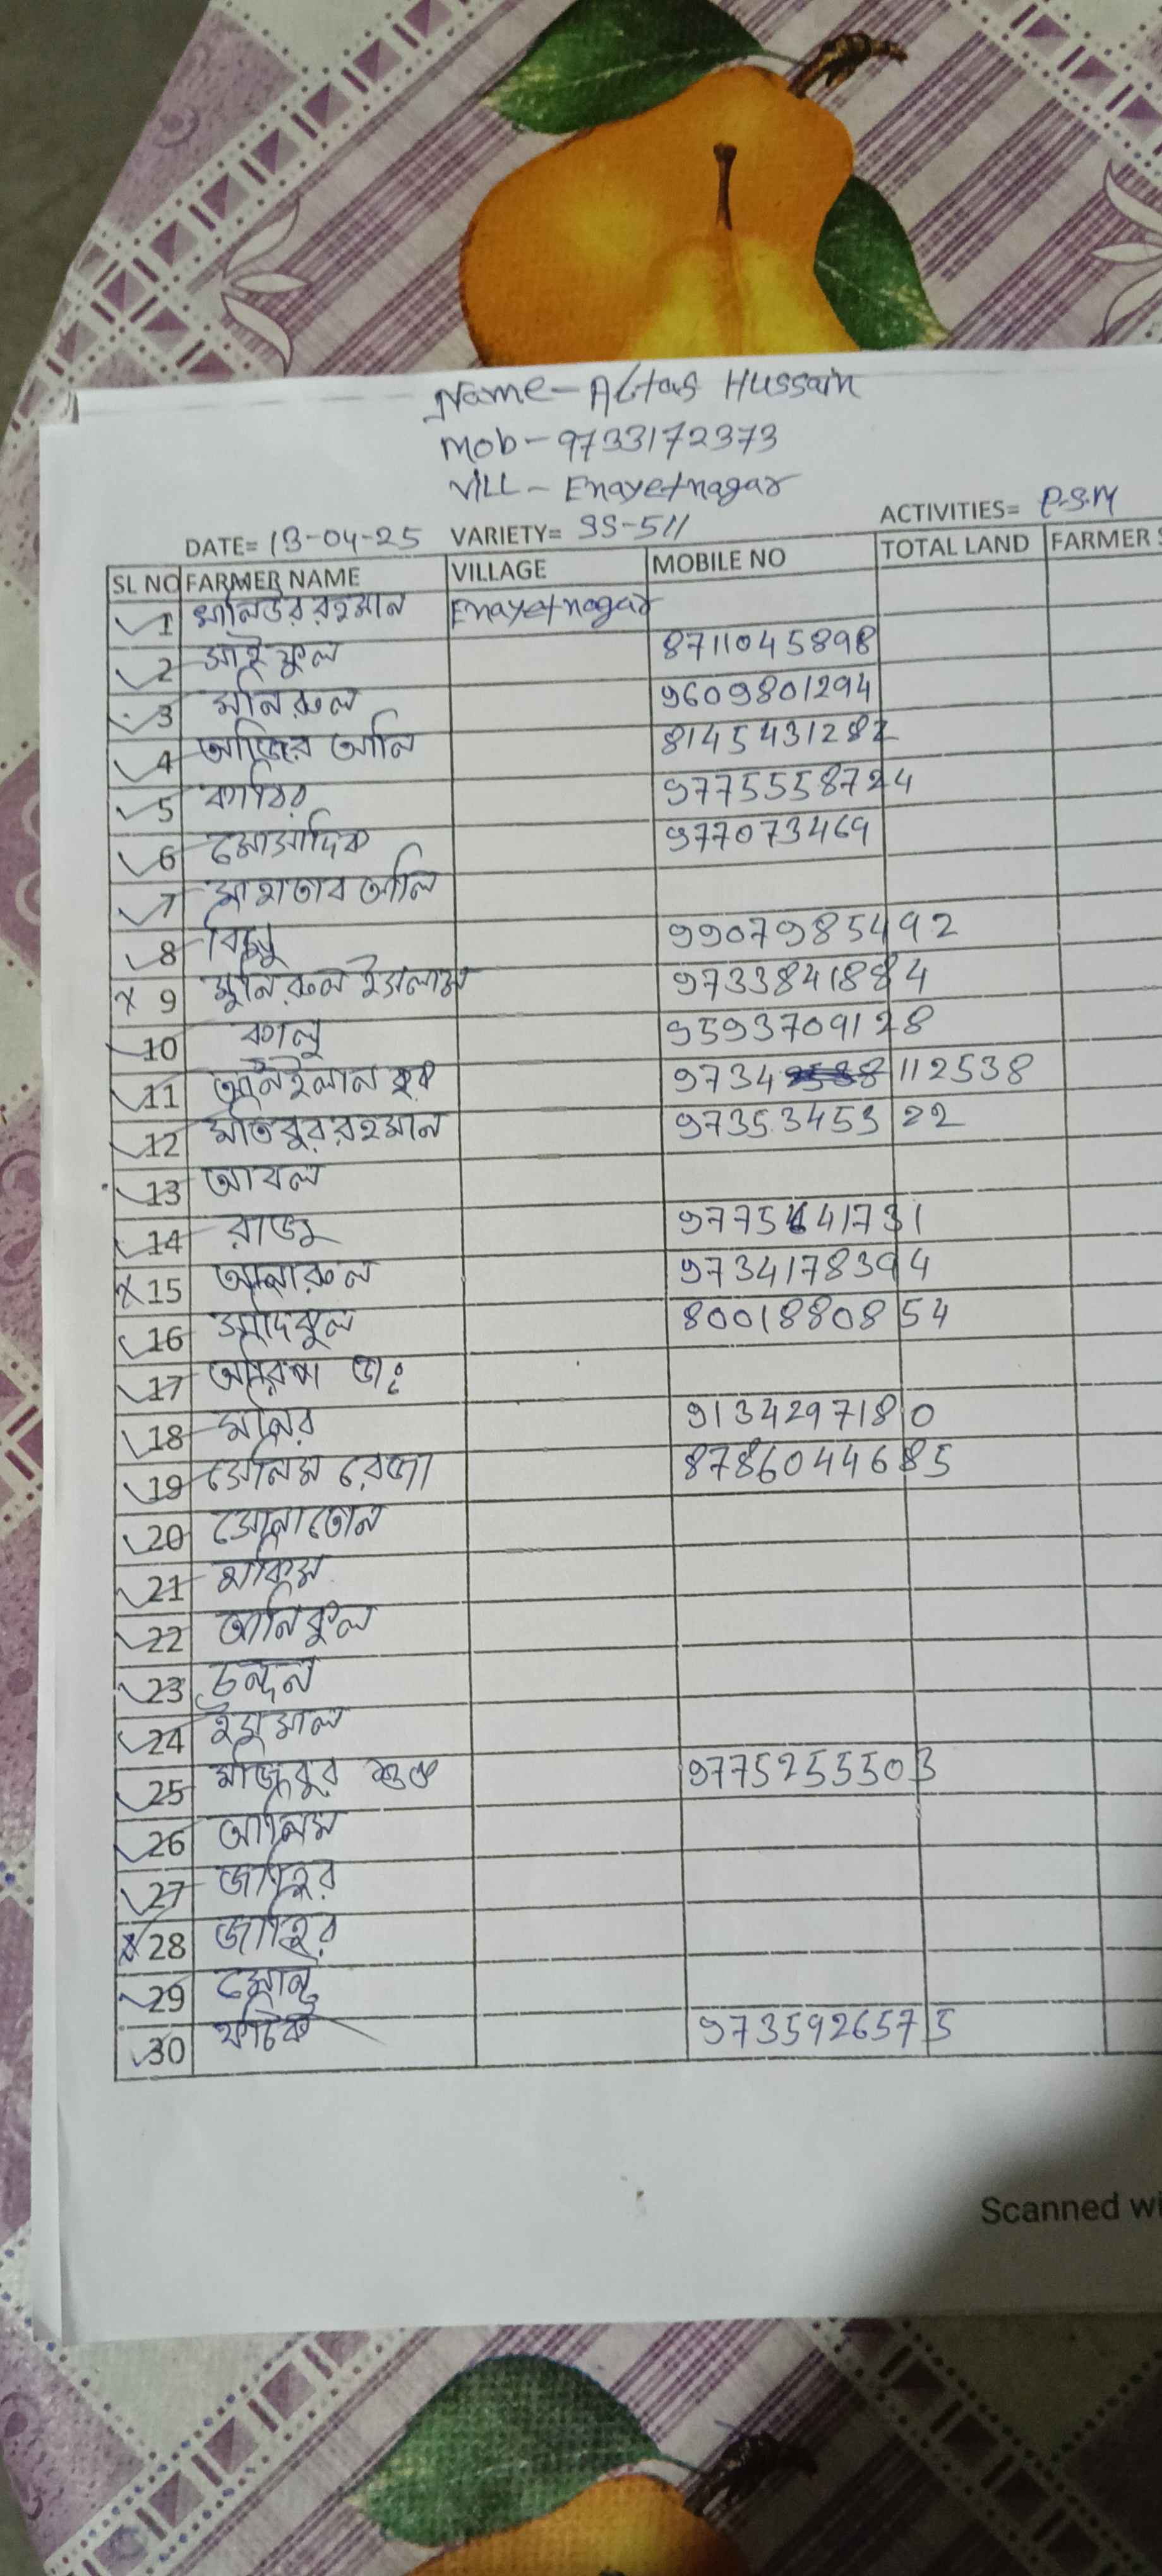 Name- Altas Hussain
Mob- 9733172373
VILL- Enayetnagar
ACTIVITIES= P.S.M
DATE= 13-04-25 VARIETY= SS-511
SL NO FARMER NAME VILLAGE MOBILE NO TOTAL LAND FARMER S
1 মানিউর রহমান Enayetnagar
2 সাইফুল 8711045898
3 মনিরুল 9609801294
4 আজির আলি 8145431282
5 কাবির 9775558724
6 মোসাদিক 977073469
7 মাহাতাব আলি
8 99079854 92
9 মুনিরুল ইসলাম 9733841884
10 কালু 9593709128
11 9734 112538
12 মতিবুর রহমান 97353453 22
13 আবল
14 রাজু 9775641731
15 আনারুল 9734178394
16 সাদিকুল 8001880854
17
18 মনির 9134297180
19 সেলিম রেজা 87860446 85
20
21
22 আনিকুল
23 চন্দন
24
25 মজিবুর 9775255503
26 আলিম
27 জাহির
28 জাহির
29
30 ফটিক 9735926575
Scanned wi